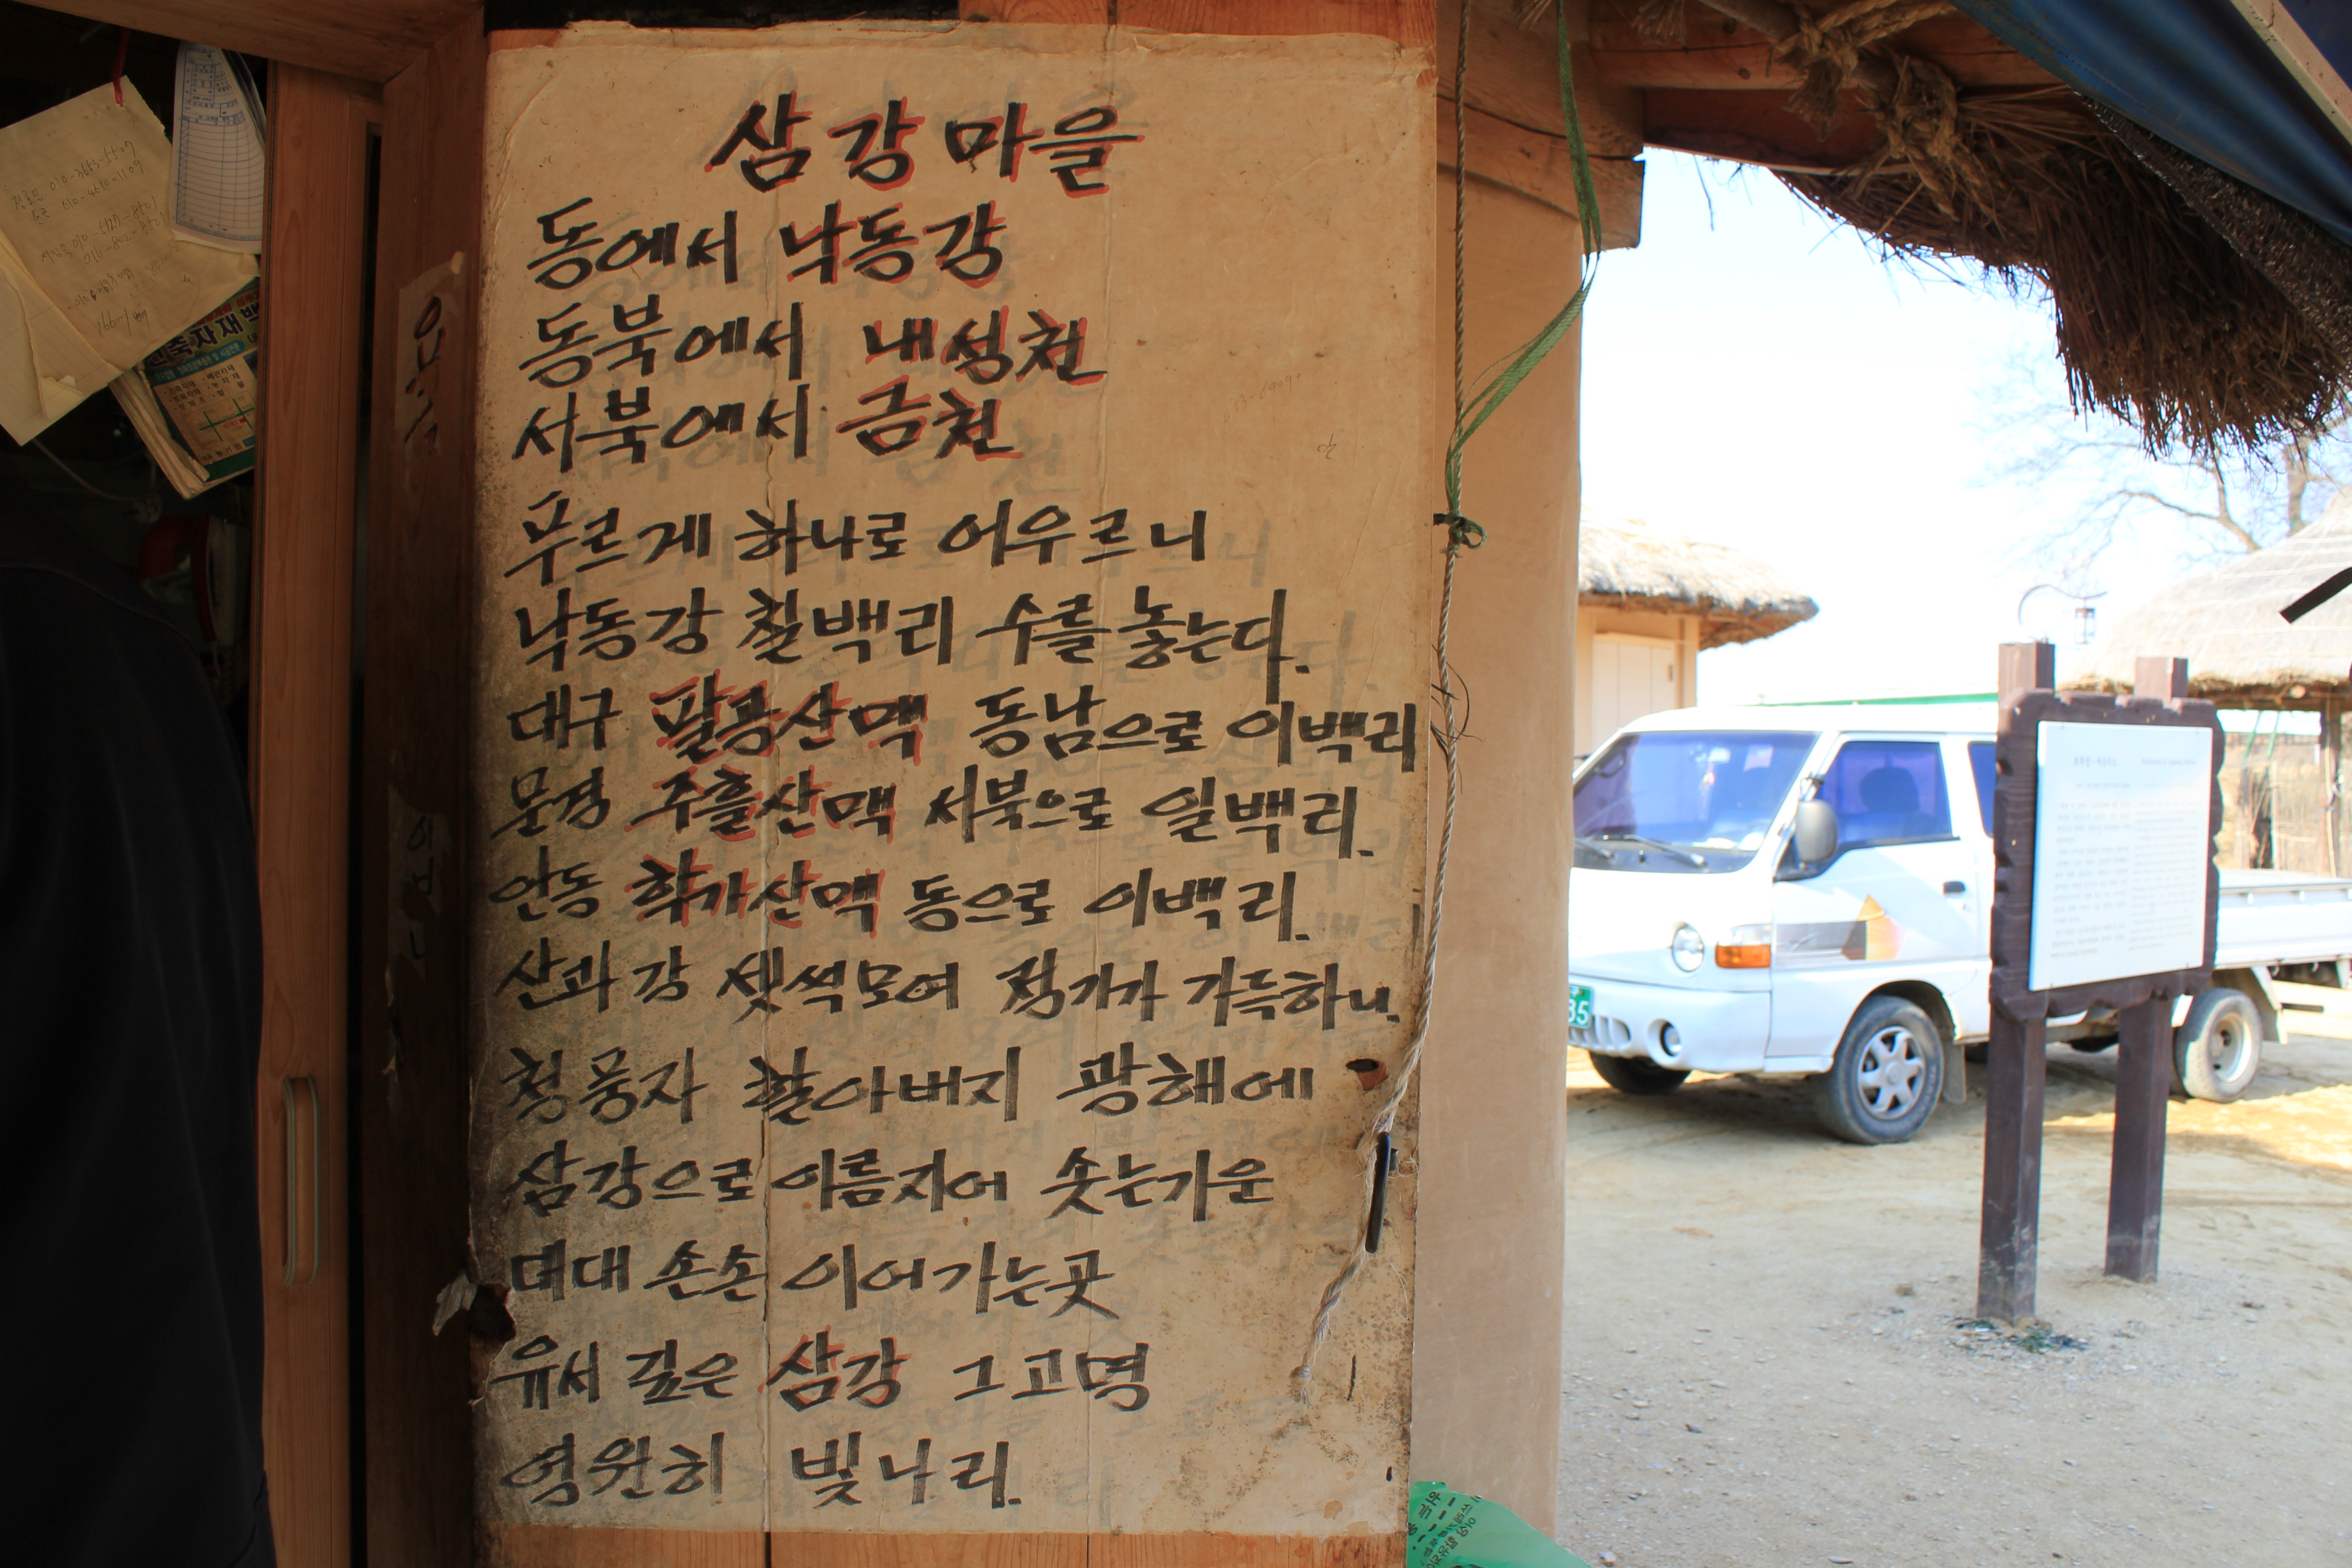 삼강마을
동에서 낙동강
동북에서 내성천
서북에서 금천
푸르게 하나로 어우르니
낙동강 칠백리 수를 놓는다.
대구 팔공산맥 동남으로 이백리
문경 주흘산맥 서북으로 일백리.
안동 학가산맥 동으로 이백리.
산과 강 셋씩모여 정기가 가득하니.
청풍자 할아버지 광해에
삼강으로 이름지어 솟는기운
대대 손손 이어가는곳
유서 깊은 삼강 그고명
영원히 빛나리.